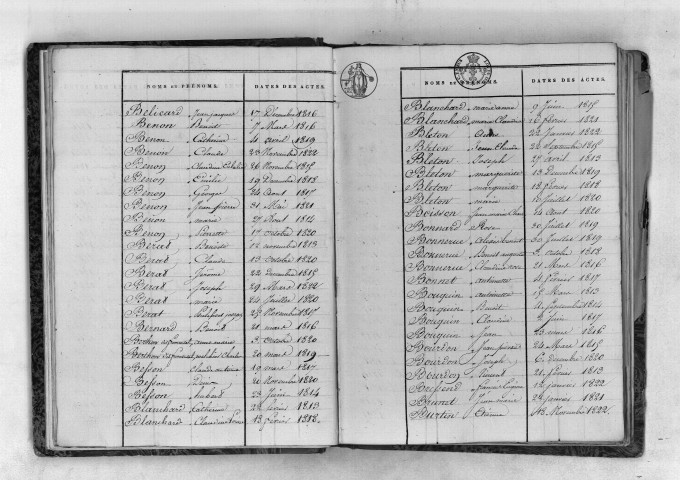 NOMS ET PRÉNOMS. DATES DES ACTES.
Bélicard Jean jacques 17 Décembre 1816
Benon Benoit 7 Mars 1816
Benon Catherine 4 avril 1819
Benon Claude 23 Novembre 1822
Benon Claudine 26 Novembre 1815
Benon Emilie 19 Décembre 1818
Benon George 24 Aout 1817
Benon Jean pierre 31 Mai 1821
Benon marie 27 Aout 1814
Benon Pierrette 1er octobre 1820
Berat Benoite 12 novembre 1813
Berat Claude 13 octobre 1820
Berat Jérome 22 decembre 1815
Berat Joseph 29 Mars 1822
Berat marie 24 Juillet 1820
Berat 25 Novembre 1817
Bernard Benoit 21 mars 1816
Berthon 3 octobre 1820
Berthon 20 mars 1819
Besson Claude antoine 19 mars 1817
Besson 20 Novembre 1820
Besson hubard 23 Juin 1814
Blanchard Catherine 22 fevrier 1813
Blanchard Claudine 13 Fevrier 1818
NOMS ET PRÉNOMS. DATES DES ACTES.
Blanchard marianne 9 Juin 1815
Blanchard marie Claudine 16 fevrier 1821
Bleton 22 Janvier 1822
Bleton Jean Claude 26 Novembre 1815
Bleton Joseph 27 avril 1813
Bleton marguerite 13 Decembre 1819
Bleton marguerite 18 fevrier 1818
Bleton marie 10 Juillet 1820
Boisson Jean marie 24 Aout 1820
Bonnard Rose 20 Juillet 1819
Bonnerue 30 Juillet 1819
Bonnerue Benoit 3 octobre 1818
Bonnerue Claudine 21 Mars 1816
Bonnet antoinette 4 Fevrier 1817
Bouquin antoinette 15 Mars 1813
Bouquin Benoit Novembre 1814
Bouquin Claudine 2 Juin 1817
Bouquin Jean 23 mars 1816
Bourdon Jean 24 Mars 1815
Bourdon Joseph 6 Decembre 1820
Bourdon Vincent 21 fevrier 1813
12 janvier 1822
Brunet Jean marie 24 janvier 1821
Burtin Etienne 13 Novembre 1822